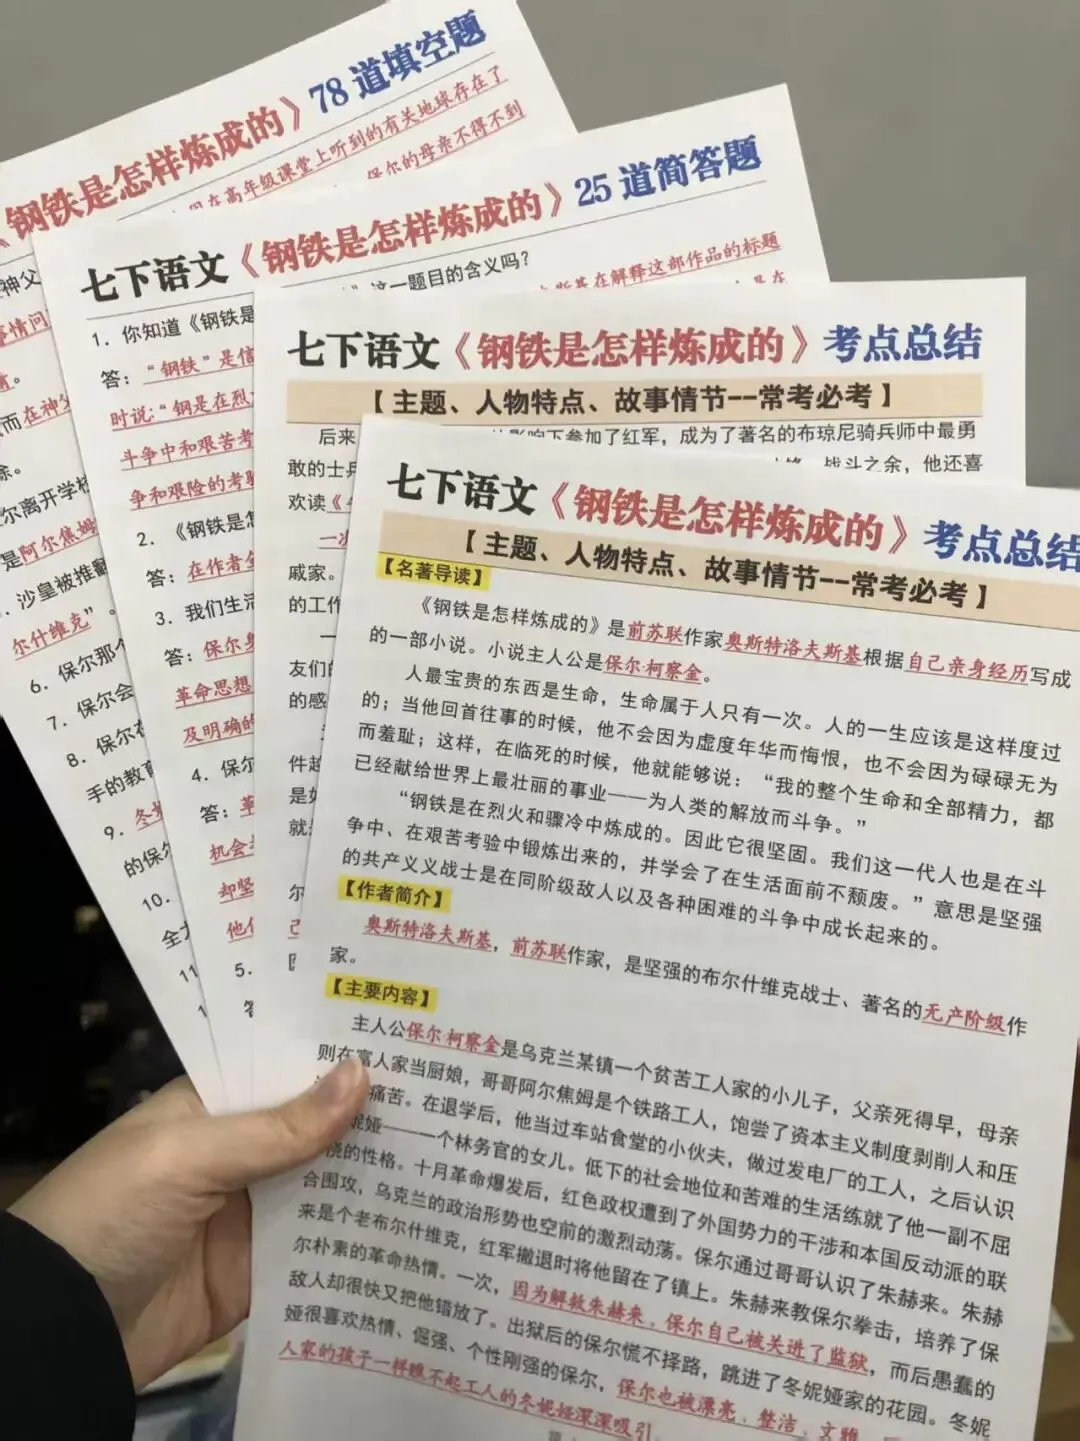 《钢铁是怎样炼成的》78道填空题
高年级课堂上听到的有关地球存在了
保尔的母亲不得不到
神父
事情问
而在神父
尔离开学校
是阿尔焦姆
沙皇被推翻
尔什维克”。
6. 保尔那个
7. 保尔会
8. 保尔在
手的教育
9. 冬
的保尔
10.
全
11
七下语文《钢铁是怎样炼成的》25道简答题
1. 你知道《钢铁是
这一题目的含义吗？
答：“钢铁”是信
斯基在解释这部作品的标题
时说：“钢是在烈
是在
斗争中和艰苦考
争和艰险的考验
2. 《钢铁是怎
答：在作者全
3. 我们生活
答：保尔·
革命思想
及明确的
4. 保尔
答：革
机会
却坚
他
5.
答
七下语文《钢铁是怎样炼成的》考点总结
【主题、人物特点、故事情节--常考必考】
后来
影响下参加了红军，成为了著名的布琼尼骑兵师中最勇
敢的士兵
战斗之余，他还喜
欢读《
一次
戚家。
的工作
友们的
的感
件
是如
就
尔
七下语文《钢铁是怎样炼成的》考点总结
【主题、人物特点、故事情节--常考必考】
【名著导读】
《钢铁是怎样炼成的》是前苏联作家奥斯特洛夫斯基根据自己亲身经历写成
的一部小说。小说主人公是保尔·柯察金。
人最宝贵的东西是生命，生命属于人只有一次。人的一生应该是这样度过
的；当他回首往事的时候，他不会因为虚度年华而悔恨，也不会因为碌碌无为
而羞耻；这样，在临死的时候，他就能够说：“我的整个生命和全部精力，都
已经献给世界上最壮丽的事业——为人类的解放而斗争。”
“钢铁是在烈火和骤冷中炼成的。因此它很坚固。我们这一代人也是在斗
争中、在艰苦考验中锻炼出来的，并学会了在生活面前不颓废。”意思是坚强
的共产义义战士是在同阶级敌人以及各种困难的斗争中成长起来的。
【作者简介】
奥斯特洛夫斯基，前苏联作家，是坚强的布尔什维克战士、著名的无产阶级作
家。
【主要内容】
主人公保尔·柯察金是乌克兰某镇一个贫苦工人家的小儿子，父亲死得早，母亲
则在富人家当厨娘，哥哥阿尔焦姆是个铁路工人，饱尝了资本主义制度剥削人和压
痛苦。在退学后，他当过车站食堂的小伙夫，做过发电厂的工人，之后认识
妮娅——一个林务官的女儿。低下的社会地位和苦难的生活练就了他一副不屈
挠的性格。十月革命爆发后，红色政权遭到了外国势力的干涉和本国反动派的联
合围攻，乌克兰的政治形势也空前的激烈动荡。保尔通过哥哥认识了朱赫来。朱赫
来是个老布尔什维克，红军撤退时将他留在了镇上。朱赫来教保尔拳击，培养了保
尔朴素的革命热情。一次，因为解救朱赫来，保尔自己被关进了监狱，而后愚蠢的
敌人却很快又把他错放了。出狱后的保尔慌不择路，跳进了冬妮娅家的花园。冬妮
娅很喜欢热情、倔强、个性刚强的保尔，保尔也被漂亮、整洁、文雅、
人家的孩子一样瞧不起工人的冬妮娅深深吸引。